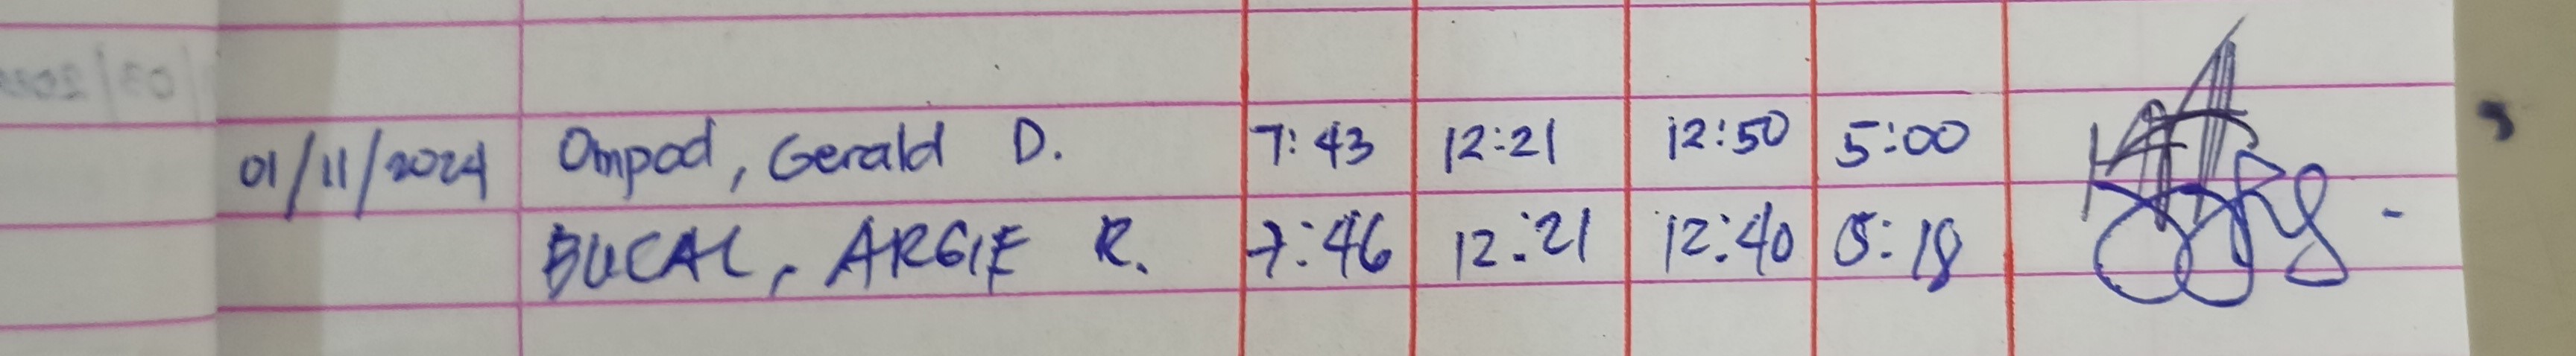 01/11/2024 Ompod, Gerald D. 7:43 12:21 12:50 5:00
BUCAL, ARGIE R. 7:46 12:21 12:40 5:18